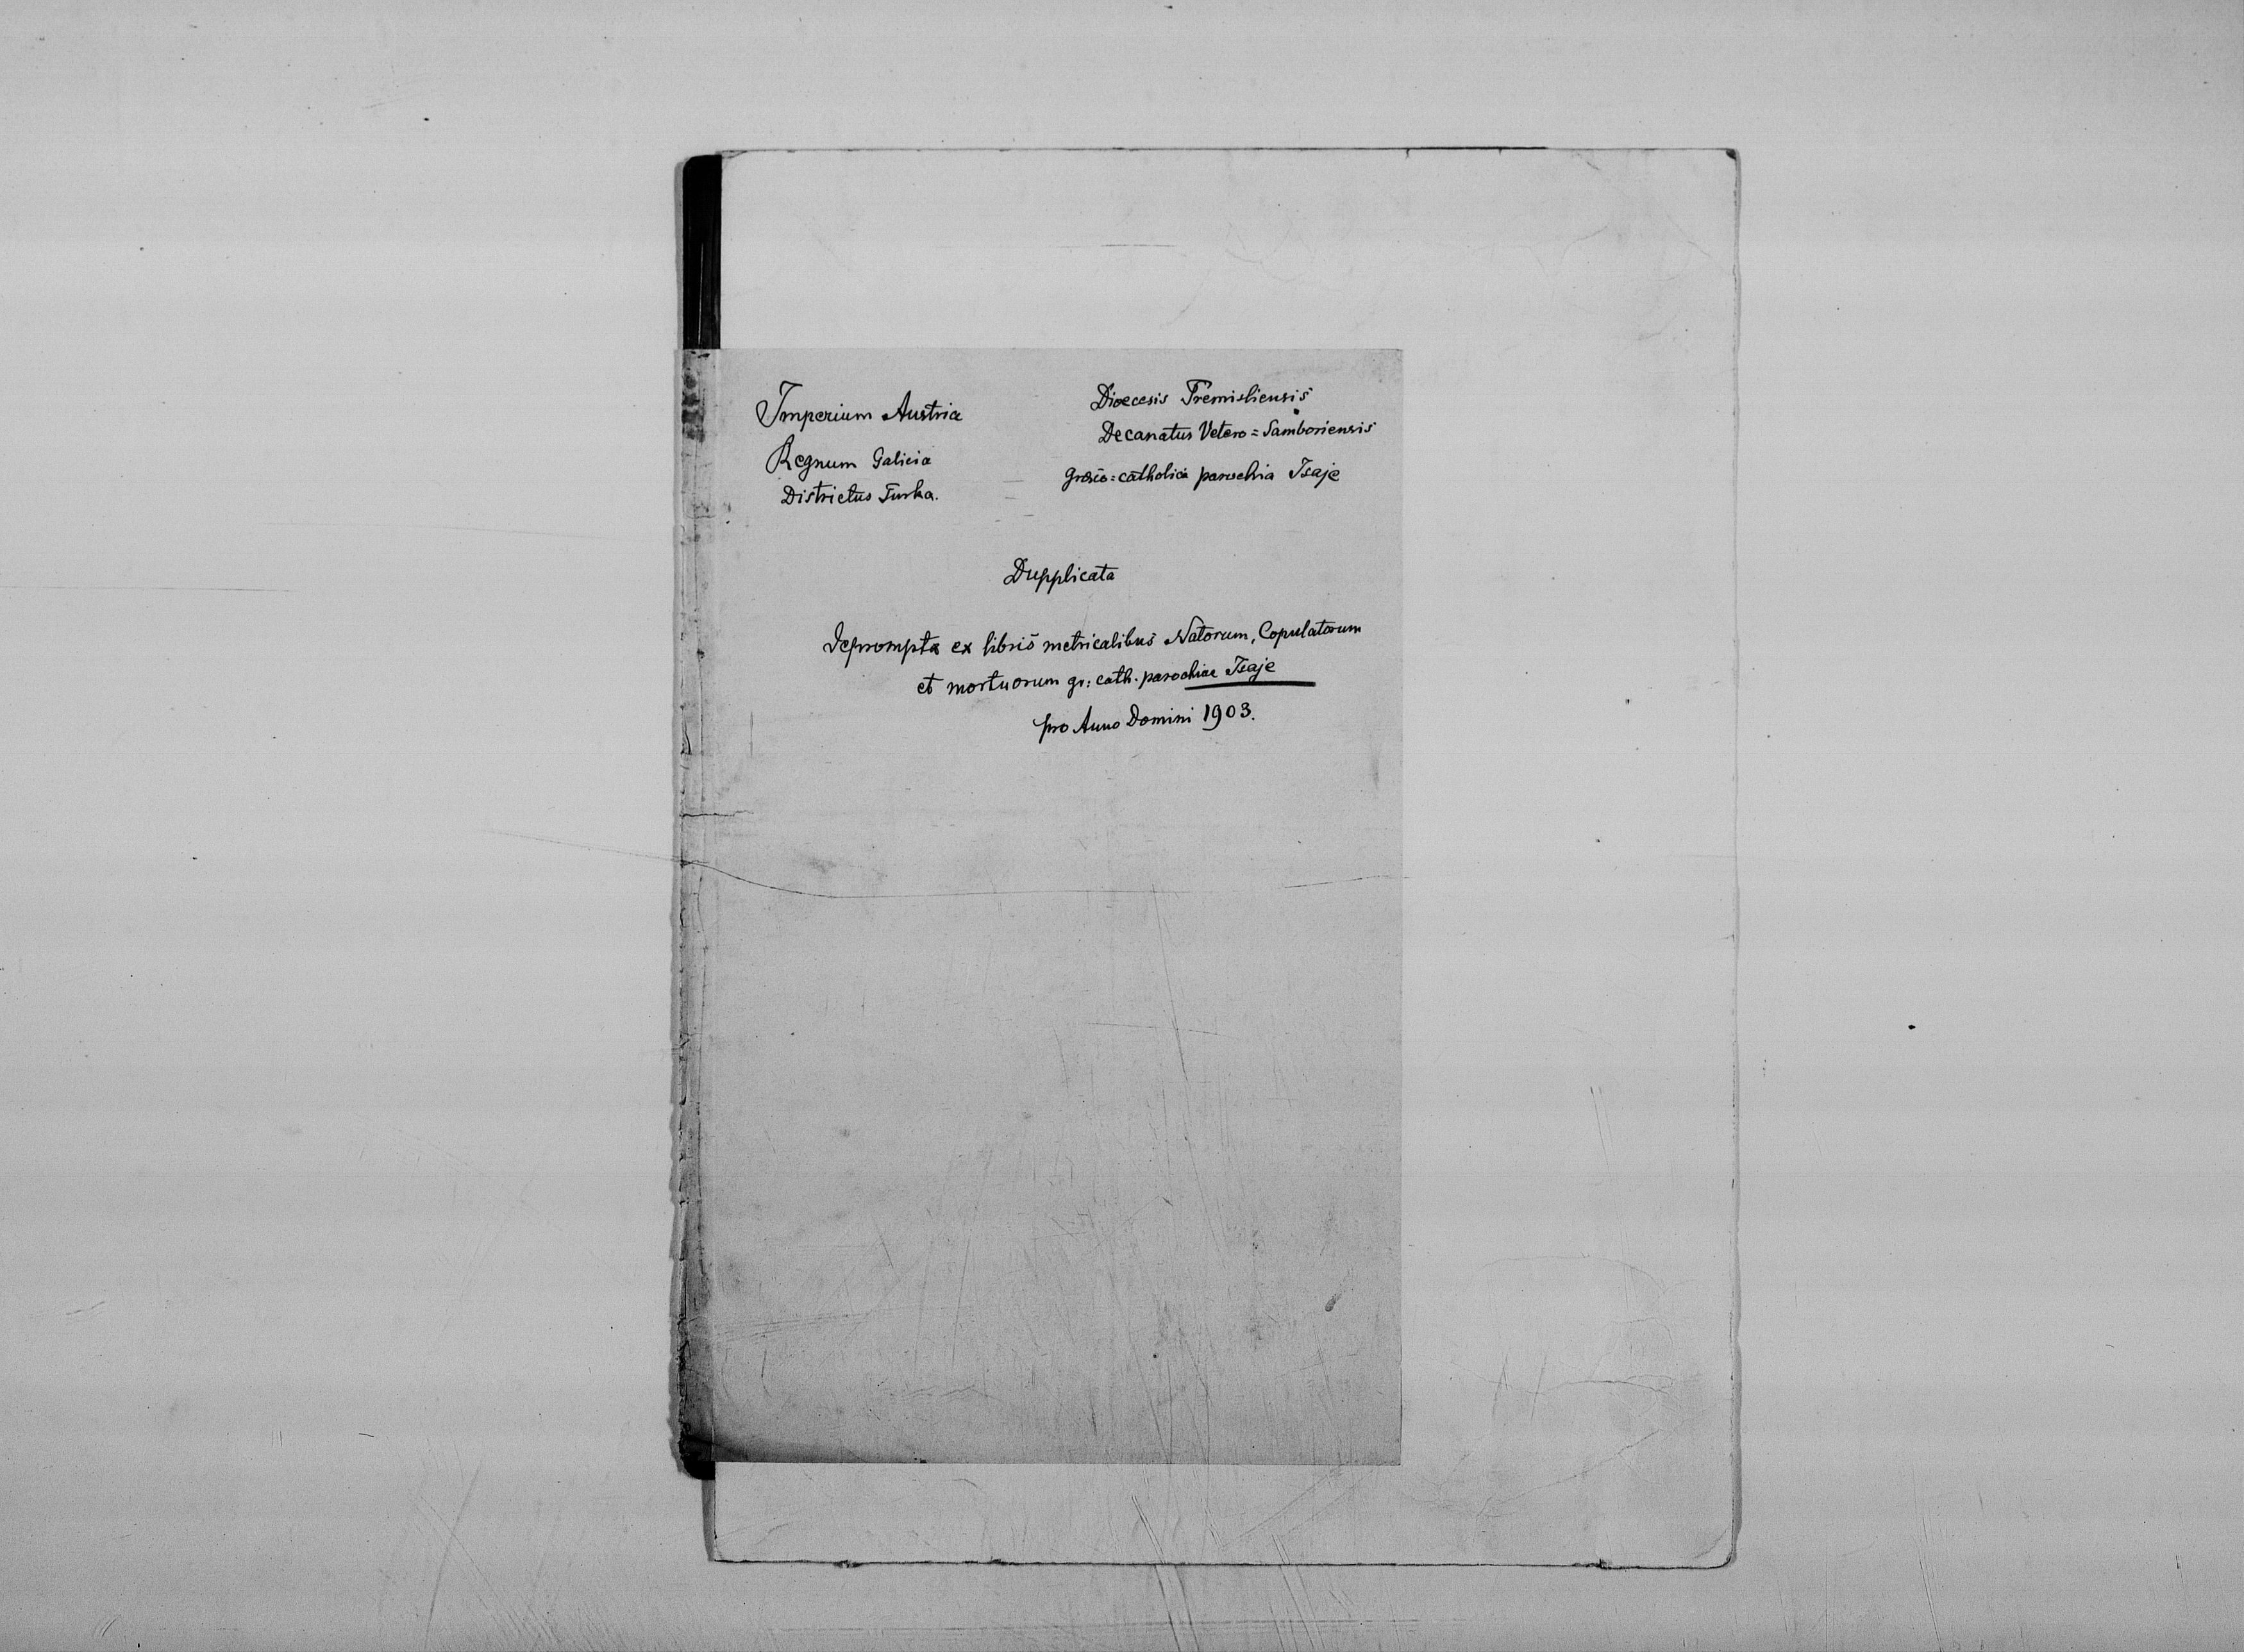 Imperium Austria
Regnum Galicia
Districtus Turka.
Dioecesis Premisliensis
Decanatus Vetero=Samboriensis
graeco=catholica parochia Isaje
Dupplicata
Deprompta ex libris metricalibus Natorum, Copulatorum
et mortuorum gr: cath. parochiae Isaje
pro Anno Domini 1903.